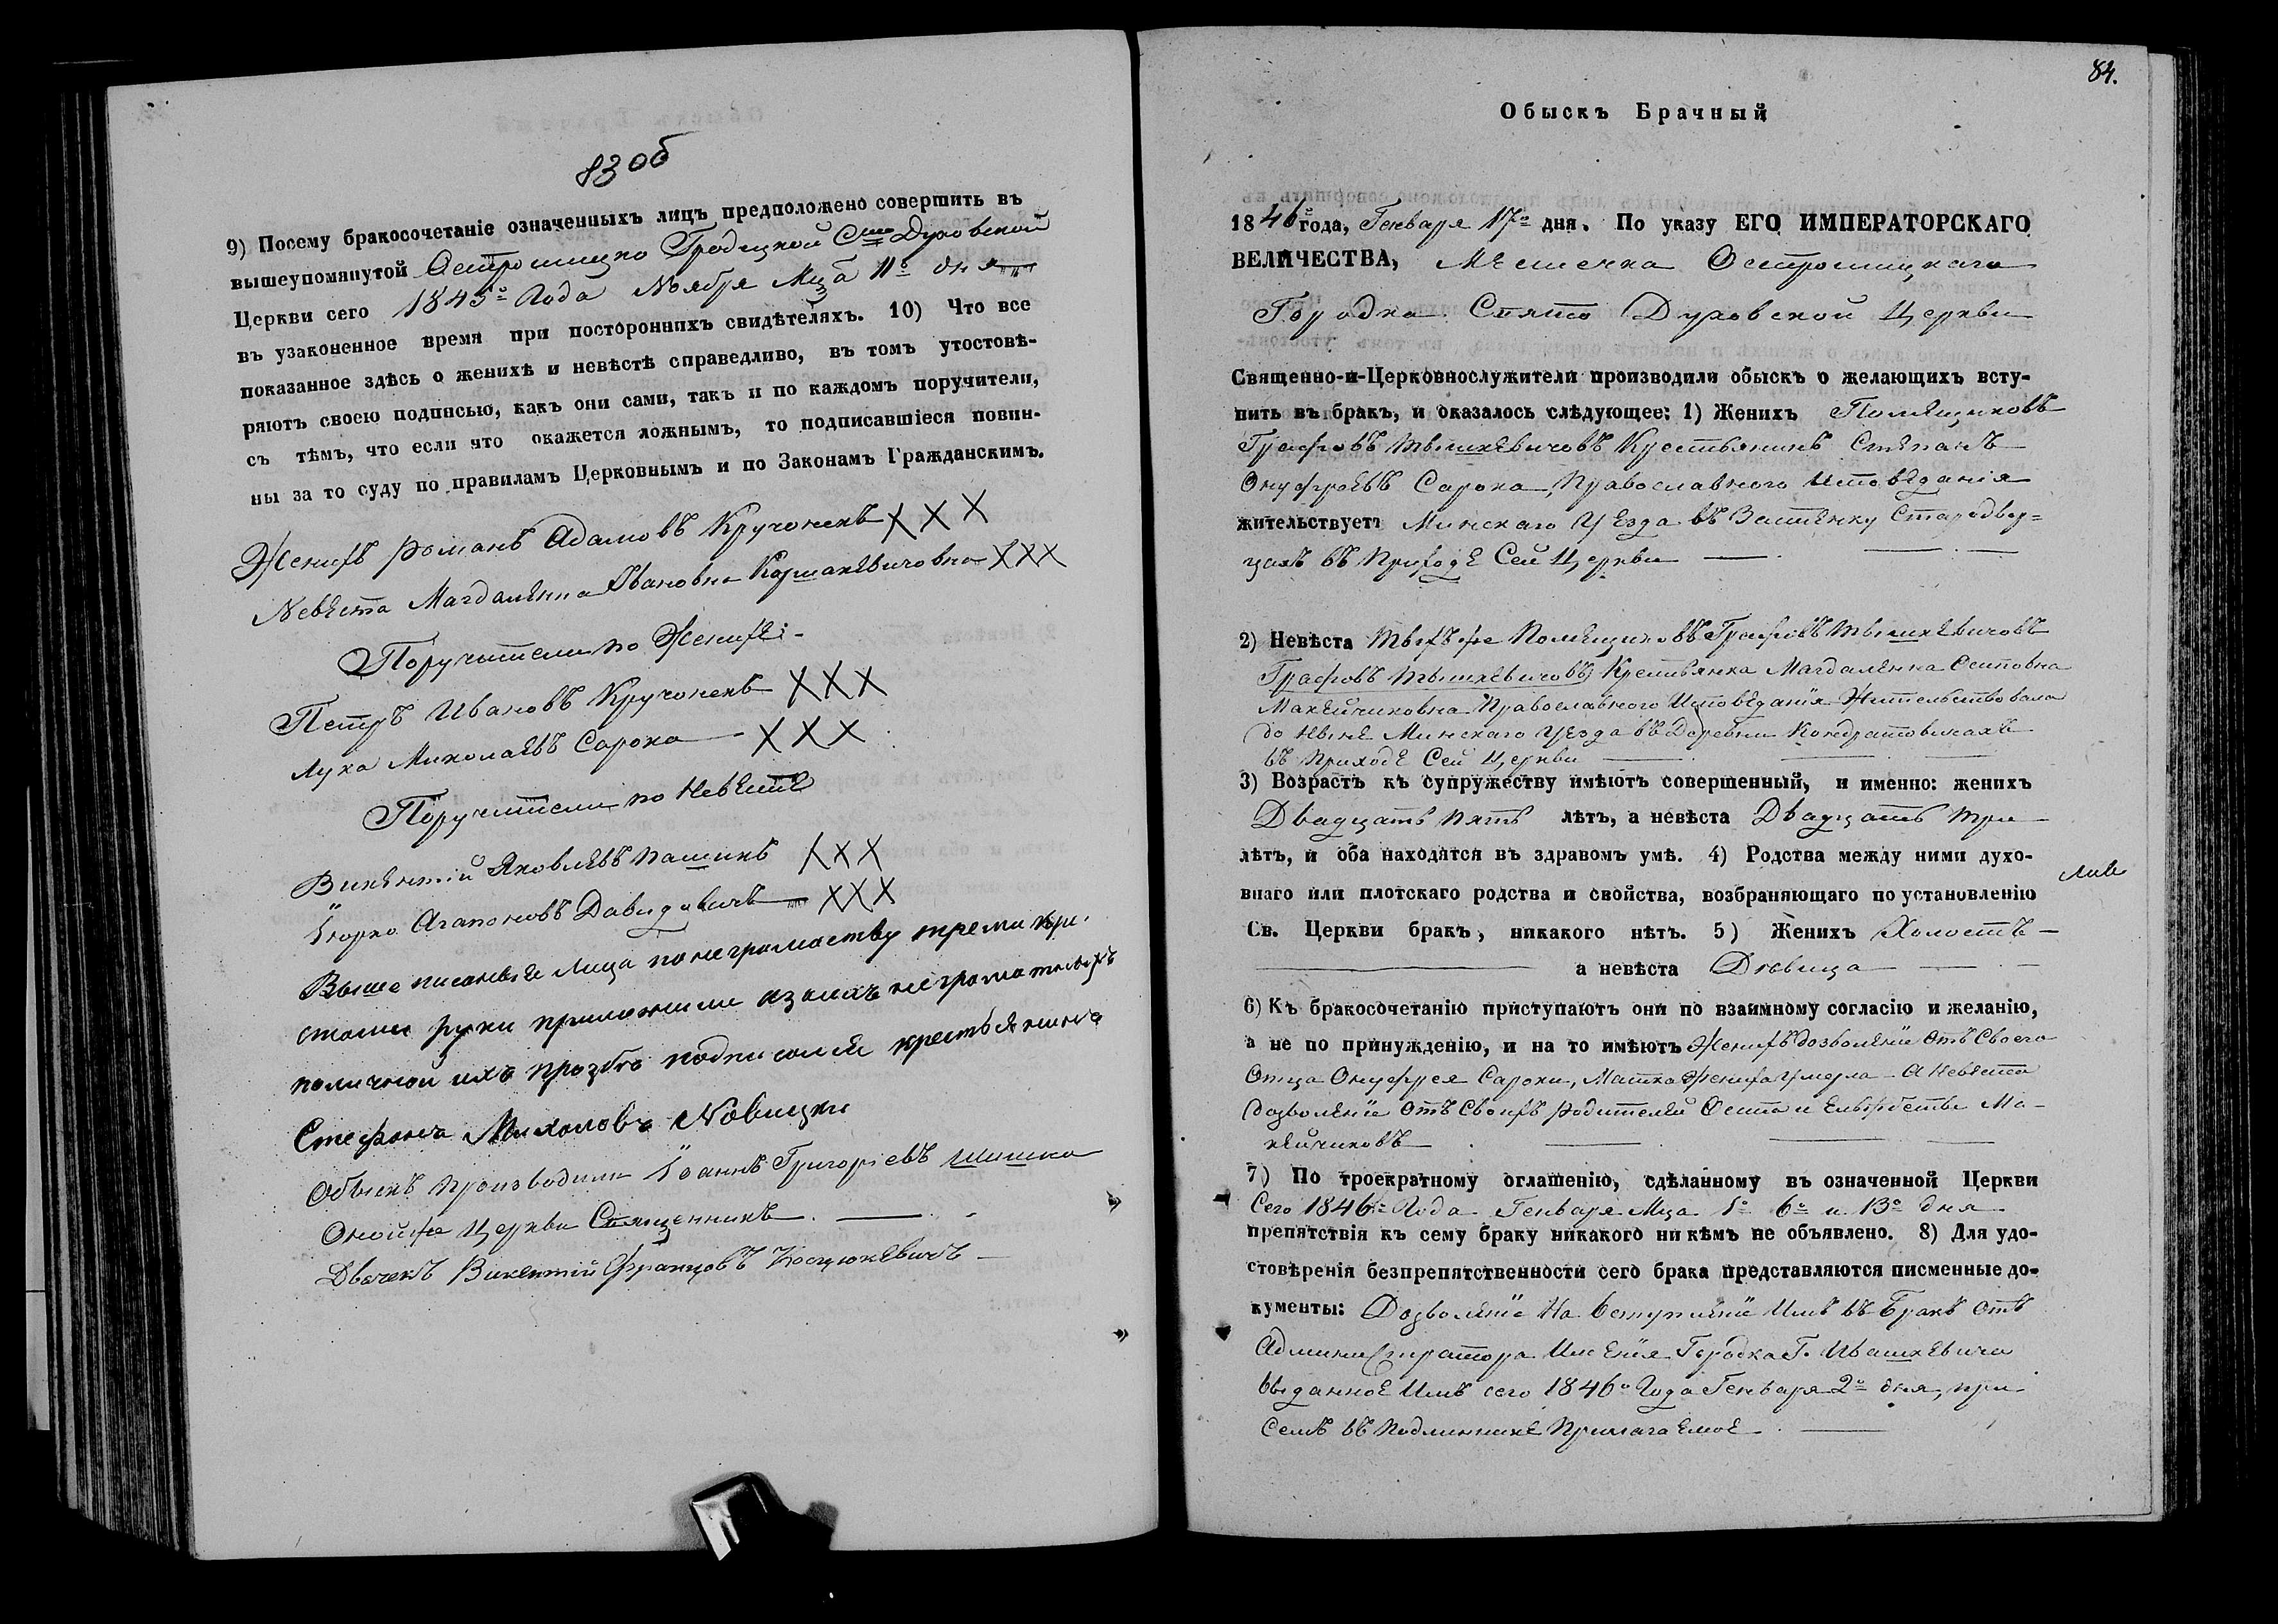 83 об
9) Посему бракосочетаніе означенныхъ лицъ предположено совершить въ
вышеупомянутой Остромицко Гродецкой Сто Духовской
Церкви сего 1845го Года Ноября Мца 11го дня
въ узаконенное время при постороннихъ свидѣтеляхъ. 10) Что все
показанное здѣсь о женихѣ и невѣстѣ справедливо, въ томъ утостовѣ-
ряютъ своею подписью, какъ они сами, такъ и по каждомъ поручители,
съ тѣмъ, что если что окажется ложнымъ, то подписавшіеся повин-
ны за то суду по правиламъ Церковнымъ и по Законамъ Гражданскимъ.
Женихъ Романъ Адамовъ Кручонекъ XXX
Невѣста Магдалѣнна Ивановна XXX
Поручители по Женихѣ:
Петръ Ивановъ Кручонекъ XXX
Лука Миколаевъ Сорока XXX
Поручители по Невѣстѣ
Викѣнтій Яковлѣвъ Пашикъ XXX
Іюрко Агапоновъ Давидовичъ XXX
Выше писанные Лица по неграмоству трема кре-
стами руки приложили а за нихъ неграмотныхъ
по личной ихъ прозбѣ подписался крестьянинъ
Стефанъ Новицки
Обыскъ производили Іоаннъ Григоріевъ Шишка
Оной же Церкви Священникъ
Дьячекъ Викентій Францовъ
84.
Обыскъ Брачный
1846го года, Генваря 17го дня. По указу ЕГО ИМПЕРАТОРСКАГО
ВЕЛИЧЕСТВА, Мѣстечка Остромицкаго
Городка Свято Духовской Церкви
Священно-и-Церковнослужители производили обыскъ о желающихъ всту-
пить въ брак, и оказалось слѣдующее: 1) Женихъ Помѣщиковъ
Графовъ Тышкѣвичовъ Крестьянинъ Стѣпанъ
Онуфрѣевъ Сорока, Православного Исповѣданія
жительствуетъ Минскаго Уѣзда въ Застѣнку Стародвор=
цахъ въ Приходѣ Сей Церкви
2) Невѣста Тѣхъ же Помѣщиковъ Графовъ Тышкѣвичовъ
Графовъ Тышкѣвичовъ Крестьянка Магдалѣнна Осиповна
Макѣйчиковна Православного Исповѣданія Жительствовала
до Нынѣ Минскаго Уѣзда въ Деревни Кондратовичахъ
въ Приходѣ Сей Церкви
3) Возрастъ къ супружеству имѣютъ совершенный, и именно: женихъ
Двадцать пять лѣтъ, а невѣста Двадцать три
лѣтъ, и оба находятся въ здравомъ умѣ. 4) Родства между ними духо-
внаго или плотскаго родства и свойства, возбраняющаго по установленію
Св. Церкви бракъ, никакого нѣтъ. 5) Женихъ Холостъ
а невѣста Дѣвица
6) Къ бракосочетанію приступаютъ они по взаимному согласію и желанію,
а не по принужденію, и на то имѣютъ Женихъ дозволѣніе отъ Своего
Отца Онуфрея Сароки, Матка Жениха Умерла. А Невѣста
дозволѣніе отъ Своихъ родителей Осипа и Ма-
кѣйчиковъ
7) По троекратному оглашенію, сдѣланному въ означенной Церкви
Сего 1846го Года Генваря Мца 1го 6го и 13го дня
препятствія къ сему браку никакого ни кѣмъ не объявлено. 8) Для удо-
стовѣренія безпрепятственности сего брака представляются писменные до-
кументы: Дозволѣніе На Вступлѣніе Имъ въ Бракъ отъ
Администратора Имѣнія Городка Г. Ивашкѣвича
выданноѣ Имъ сего 1846го Года Генваря 2го дня, при
семъ въ Подлинникѣ Прилагаемоѣ